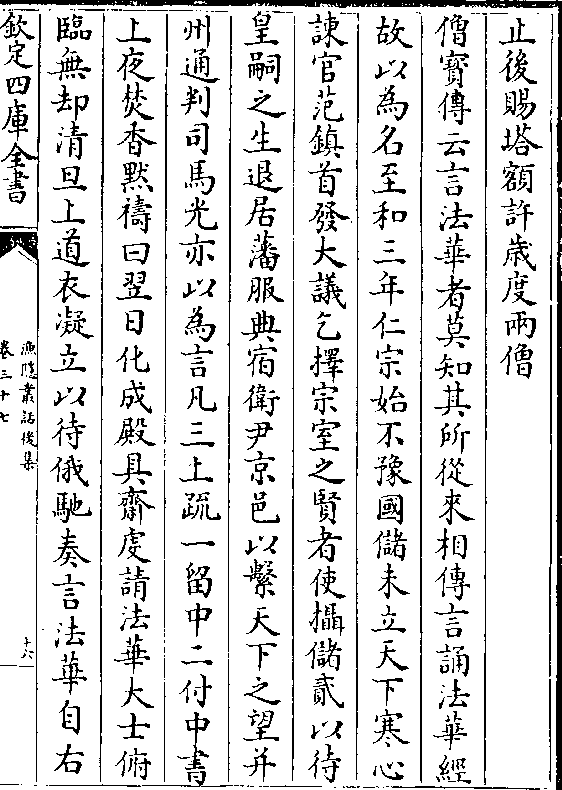 止後賜塔額許歲度兩僧
僧寶傳云言法華者莫知其所從來相傳言誦法華經
故以為名至和三年仁宗始不豫國儲未立天下寒心
諫官范鎮首發大議乞擇宗室之賢者使攝儲貳以待
皇嗣之生退居藩服典宿衛尹京邑以繫天下之望并
州通判司馬光亦以為言凡三上疏一留中二付中書
上夜焚香默禱曰翌日化成殿具齋虔請法華大士俯
臨無却清旦上道衣凝立以待俄馳奏言法華自右
欽定四庫全書
漁隱叢話後集
卷三十七
十六